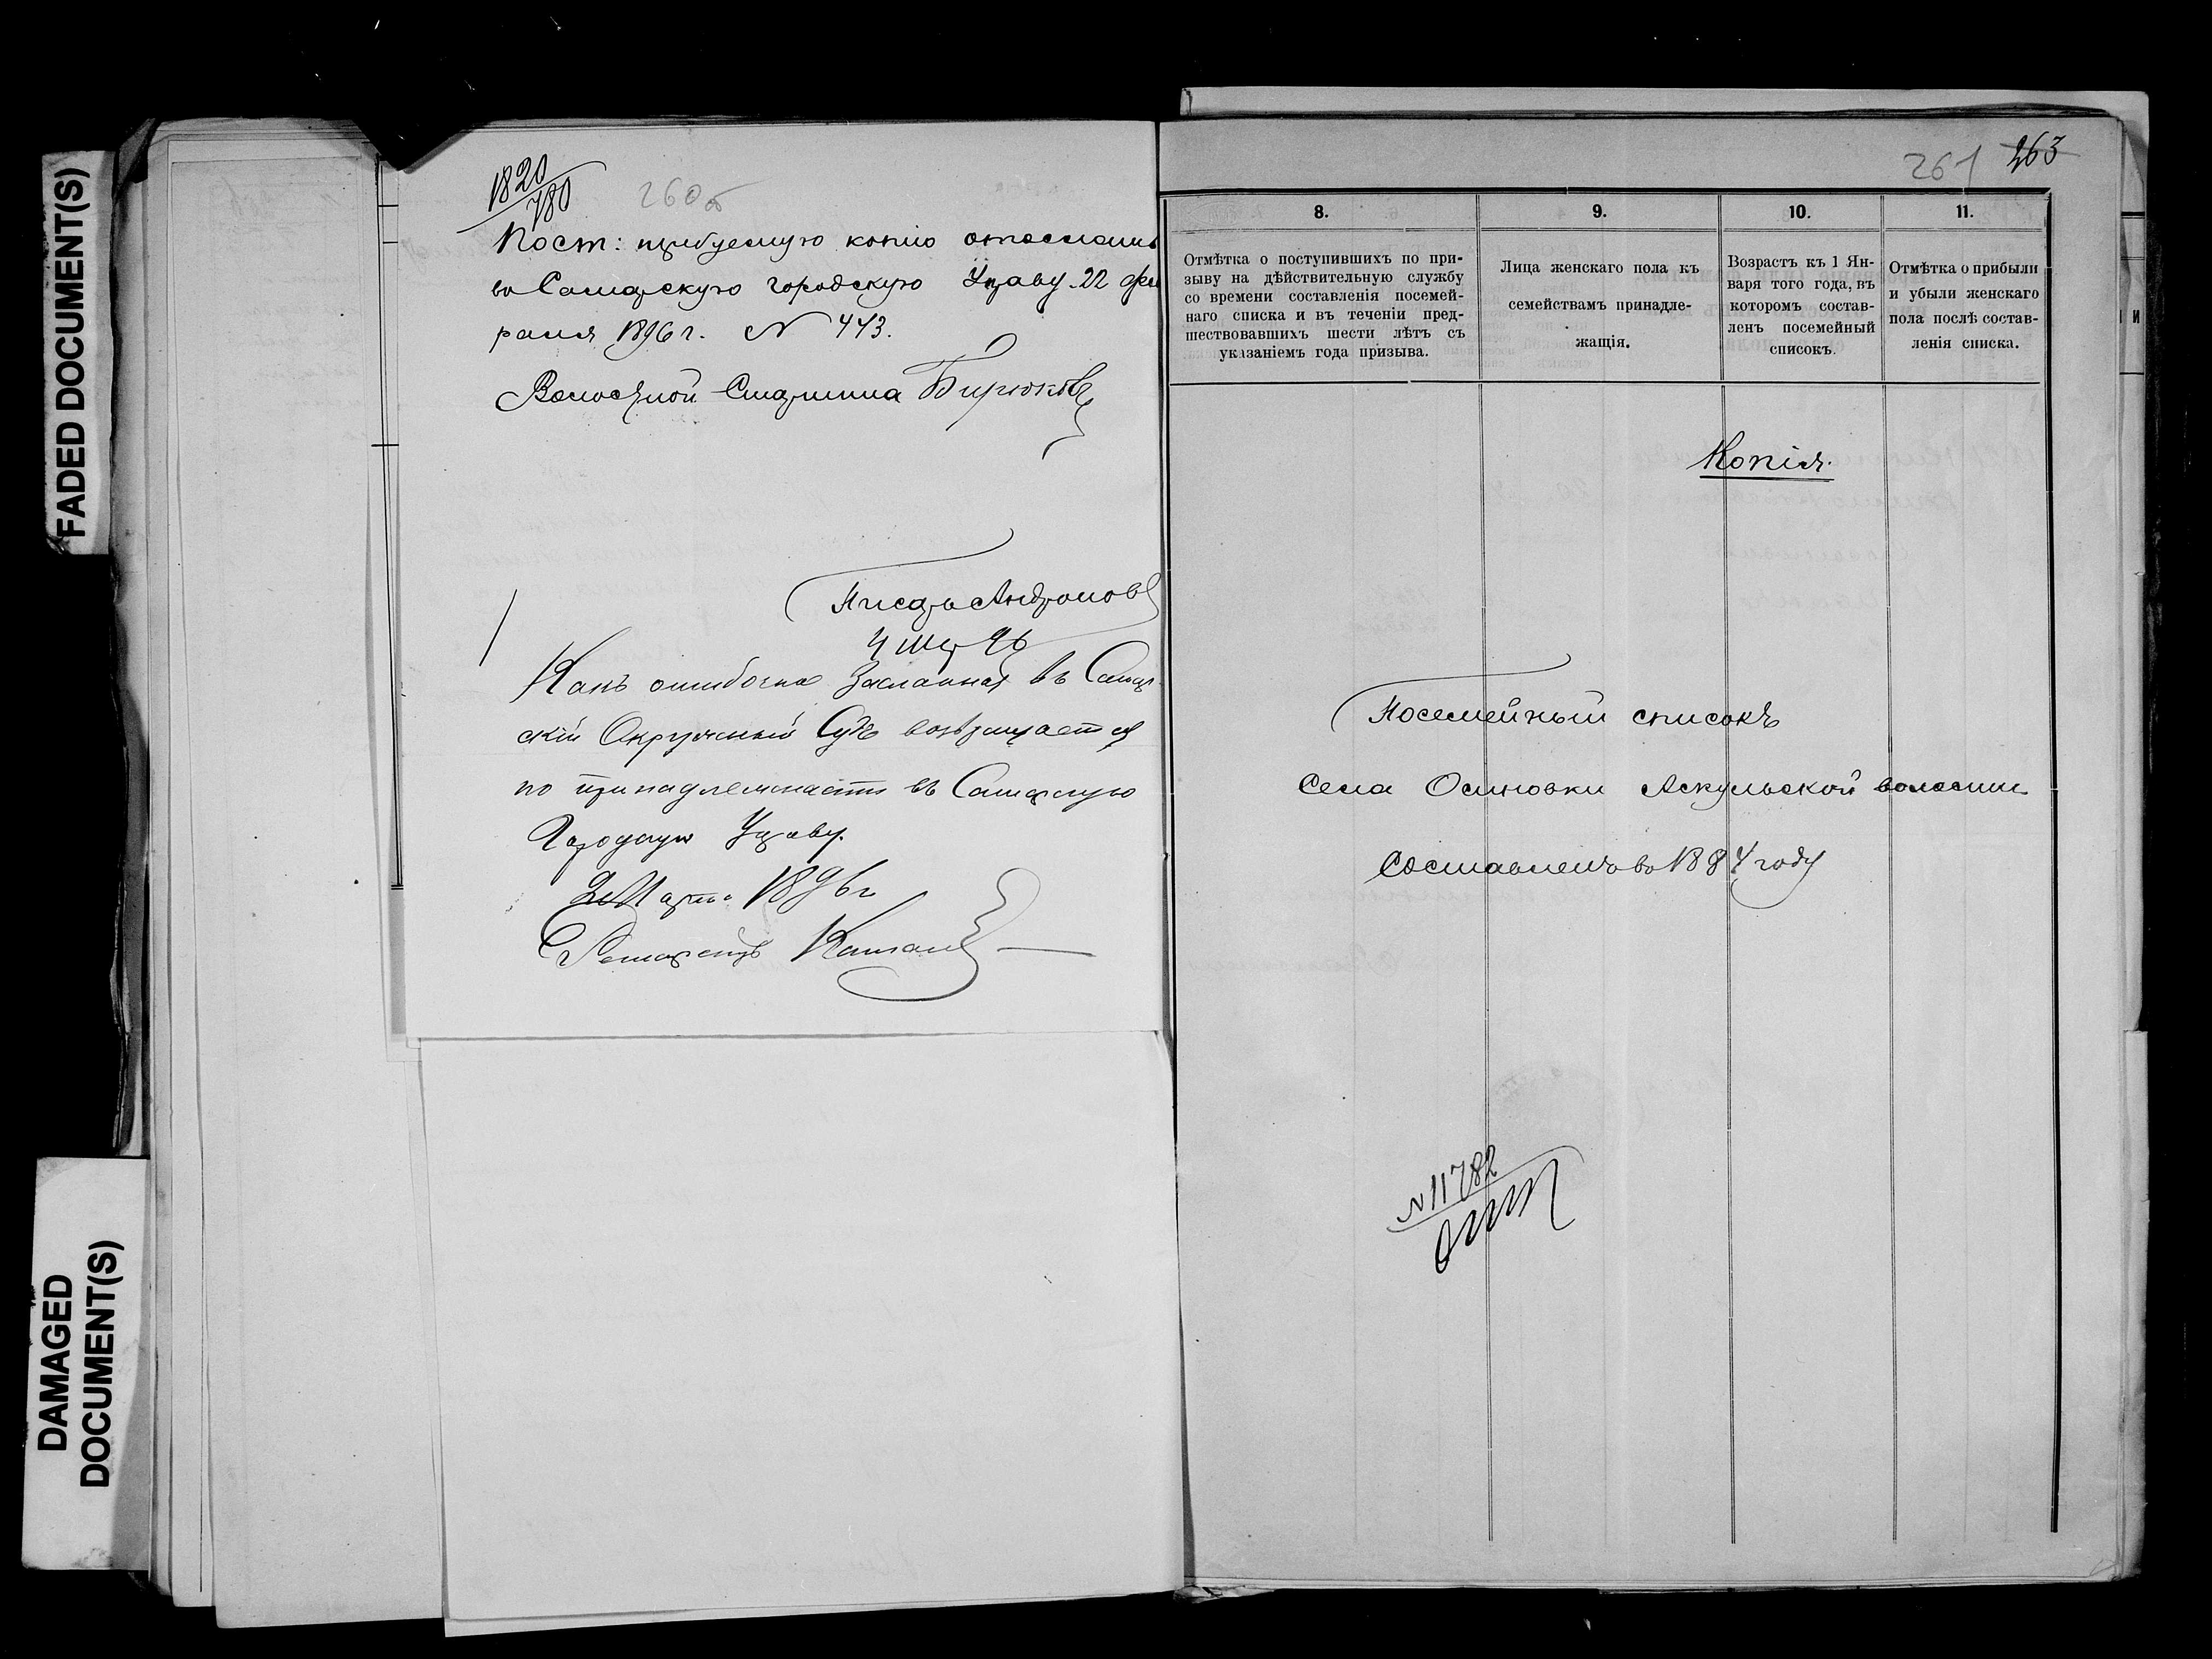 FADED DOCUMENT(S)
DAMAGED
DOCUMENT(S)
1820
780
260об
Пост: требуемую копію отослать
въ Самарскую городскую Управу. 22 фев
раля 1896 г. № 443.
Волостной Старшина Бирюковъ
Писарь Андроновъ
4 мар 96
Какъ ошибочно засланная въ Самар
скій Окружный Судъ возвращается
по принадлежности въ Самарскую
Городскую Управу.
2 Марта 1896 г
Секретарь
261 263
8.
9.
10.
11.
Отмѣтка о поступившихъ по при-
зыву на дѣйствительную службу
со времени составленія посемей-
наго списка и въ теченіи пред-
шествовавшихъ шести лѣтъ съ
указаніемъ года призыва.
Лица женскаго пола къ
семействамъ принадле-
жащія.
Возрастъ къ 1 Ян-
варя того года, въ
которомъ состав-
ленъ посемейный
списокъ.
Отмѣтка о прибыли
и убыли женскаго
пола послѣ состав-
ленія списка.
Копія.
Посемейный списокъ
Села Осиновки Аскульской волости
Составленъ въ 1884 году
№ 11782